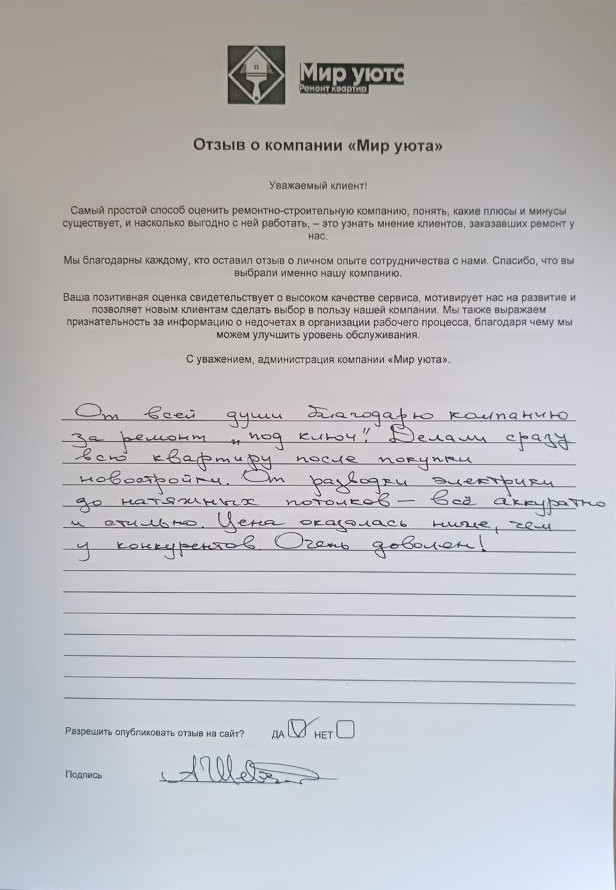 Мир уюта
Ремонт квартир
Отзыв о компании «Мир уюта»
Уважаемый клиент!
Самый простой способ оценить ремонтно-строительную компанию, понять, какие плюсы и минусы
существует, и насколько выгодно с ней работать, – это узнать мнение клиентов, заказавших ремонт у
нас.
Мы благодарны каждому, кто оставил отзыв о личном опыте сотрудничества с нами. Спасибо, что вы
выбрали именно нашу компанию.
Ваша позитивная оценка свидетельствует о высоком качестве сервиса, мотивирует нас на развитие и
позволяет новым клиентам сделать выбор в пользу нашей компании. Мы также выражаем
признательность за информацию о недочетах в организации рабочего процесса, благодаря чему мы
можем улучшить уровень обслуживания.
С уважением, администрация компании «Мир уюта».
От всей души благодарю компанию
за ремонт „под ключ". Делали сразу
всю квартиру после покупки
новостройки. От разводки электрики
до натяжных потолков — всё аккуратно
и стильно. Цена оказалась ниже, чем
у конкурентов. Очень доволен!
Разрешить опубликовать отзыв на сайт? ДА НЕТ
Подпись